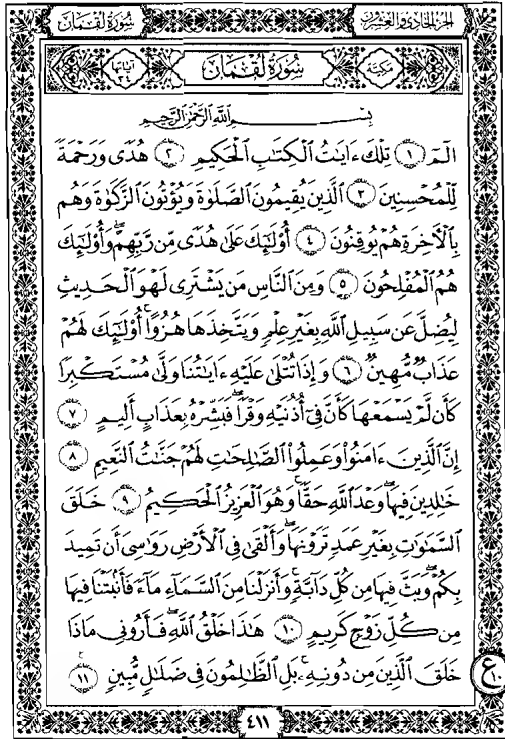 سُورَةُ لُقْمَان الجزء الحادي والعشرون
مكية سُورَةُ لُقْمَان آياتها ٣٤
بِسْمِ اللَّهِ الرَّحْمَٰنِ الرَّحِيمِ
الٓمٓ ١ تِلْكَ ءَايَٰتُ ٱلْكِتَٰبِ ٱلْحَكِيمِ ٢ هُدًى وَرَحْمَةً
لِّلْمُحْسِنِينَ ٣ ٱلَّذِينَ يُقِيمُونَ ٱلصَّلَوٰةَ وَيُؤْتُونَ ٱلزَّكَوٰةَ وَهُم
بِٱلْءَاخِرَةِ هُمْ يُوقِنُونَ ٤ أُو۟لَٰٓئِكَ عَلَىٰ هُدًى مِّن رَّبِّهِمْ ۖ وَأُو۟لَٰٓئِكَ
هُمُ ٱلْمُفْلِحُونَ ٥ وَمِنَ ٱلنَّاسِ مَن يَشْتَرِى لَهْوَ ٱلْحَدِيثِ
لِيُضِلَّ عَن سَبِيلِ ٱللَّهِ بِغَيْرِ عِلْمٍ وَيَتَّخِذَهَا هُزُوًا ۚ أُو۟لَٰٓئِكَ لَهُمْ
عَذَابٌ مُّهِينٌ ٦ وَإِذَا تُتْلَىٰ عَلَيْهِ ءَايَٰتُنَا وَلَّىٰ مُسْتَكْبِرًا
كَأَن لَّمْ يَسْمَعْهَا كَأَنَّ فِىٓ أُذُنَيْهِ وَقْرًا ۖ فَبَشِّرْهُ بِعَذَابٍ أَلِيمٍ ٧
إِنَّ ٱلَّذِينَ ءَامَنُوا۟ وَعَمِلُوا۟ ٱلصَّٰلِحَٰتِ لَهُمْ جَنَّٰتُ ٱلنَّعِيمِ ٨
خَٰلِدِينَ فِيهَا ۖ وَعْدَ ٱللَّهِ حَقًّا ۚ وَهُوَ ٱلْعَزِيزُ ٱلْحَكِيمُ ٩ خَلَقَ
ٱلسَّمَٰوَٰتِ بِغَيْرِ عَمَدٍ تَرَوْنَهَا ۖ وَأَلْقَىٰ فِى ٱلْأَرْضِ رَوَٰسِىَ أَن تَمِيدَ
بِكُمْ وَبَثَّ فِيهَا مِن كُلِّ دَآبَّةٍ ۚ وَأَنزَلْنَا مِنَ ٱلسَّمَآءِ مَآءً فَأَنۢبَتْنَا فِيهَا
مِن كُلِّ زَوْجٍ كَرِيمٍ ١٠ هَٰذَا خَلْقُ ٱللَّهِ فَأَرُونِى مَاذَا
خَلَقَ ٱلَّذِينَ مِن دُونِهِۦ ۚ بَلِ ٱلظَّٰلِمُونَ فِى ضَلَٰلٍ مُّبِينٍ ١١
ع ١٠
٤١١